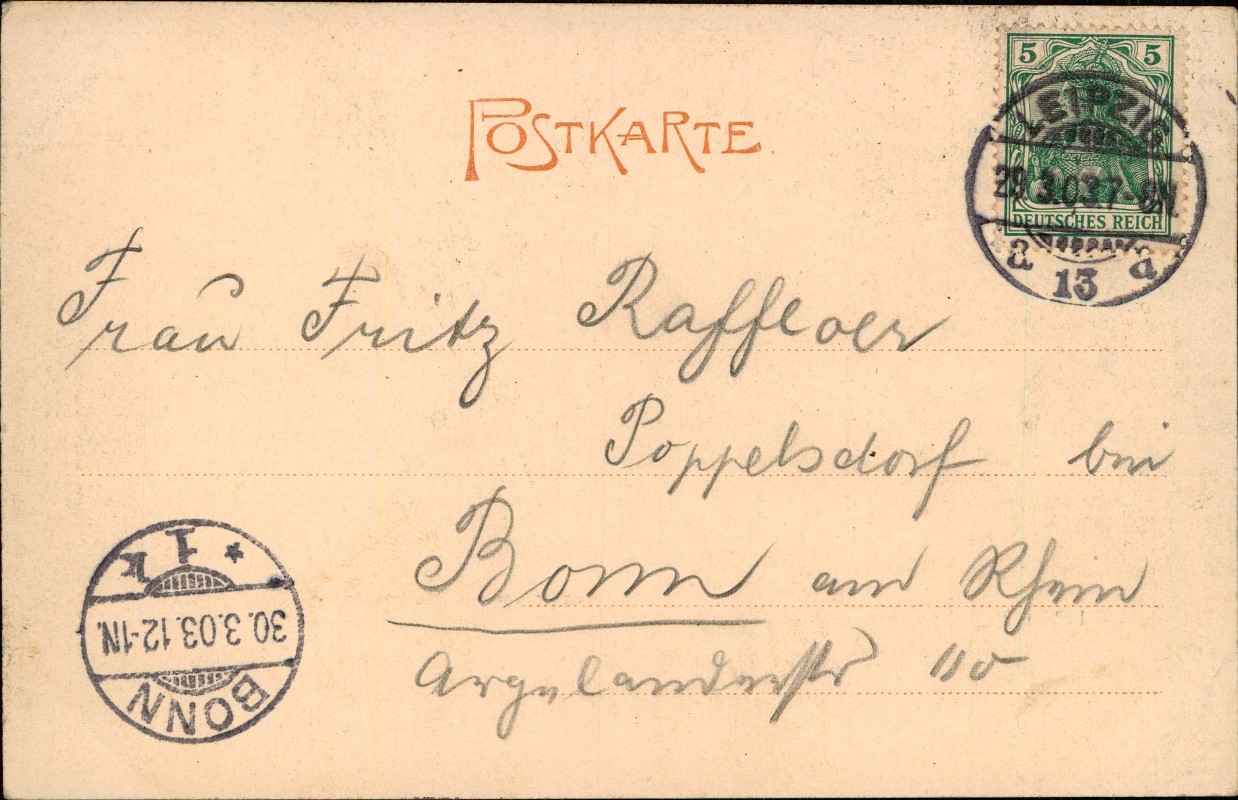 POSTKARTE
5 5
DEUTSCHES REICH
LEIPZIG
29.3.03.7-8N
a 13 a
Frau Fritz Raffloer
Poppelsdorf bei
Bonn am Rhein
Argelanderstr
BONN
30.3.03.12-1N.
* 1 k